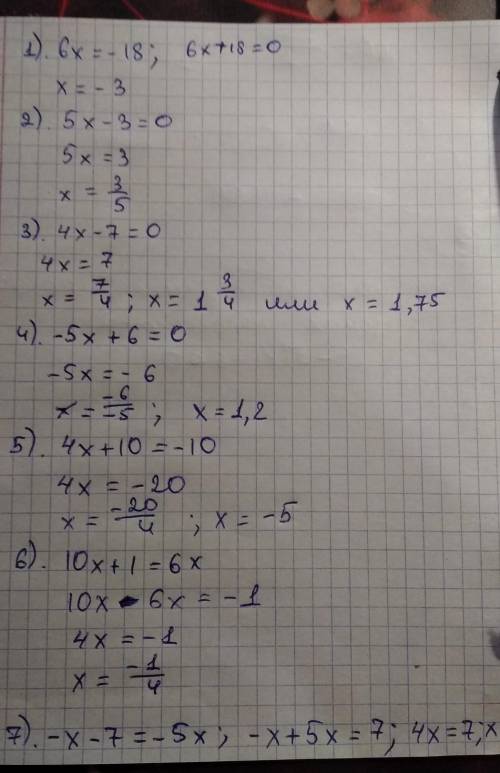 1). 6x = -18; 6x+18=0
x = -3
2). 5x - 3 = 0
5x = 3
x = 3/5
3). 4x - 7 = 0
4x = 7
x = 7/4 ; x = 1 3/4 или x = 1,75
4). -5x + 6 = 0
-5x = - 6
x = -6/-5 ; x = 1,2
5). 4x + 10 = -10
4x = -20
x = -20/4 ; x = -5
6). 10x + 1 = 6x
10x - 6x = -1
4x = -1
x = -1/4
7). -x - 7 = -5x ; -x + 5x = 7; 4x = 7; x